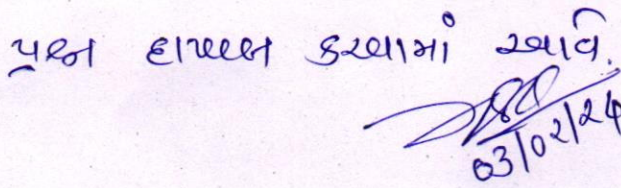 પ્રશ્ન દાખલ કરવામાં આવે.
03/02/24